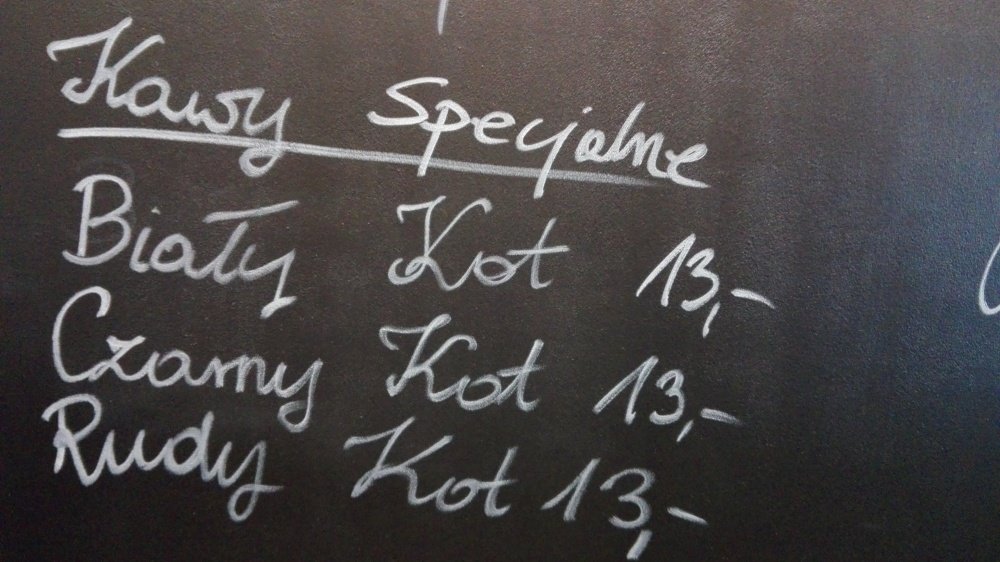 Kawy Specjalne
Biały Kot 13,-
Czarny Kot 13,-
Rudy Kot 13,-